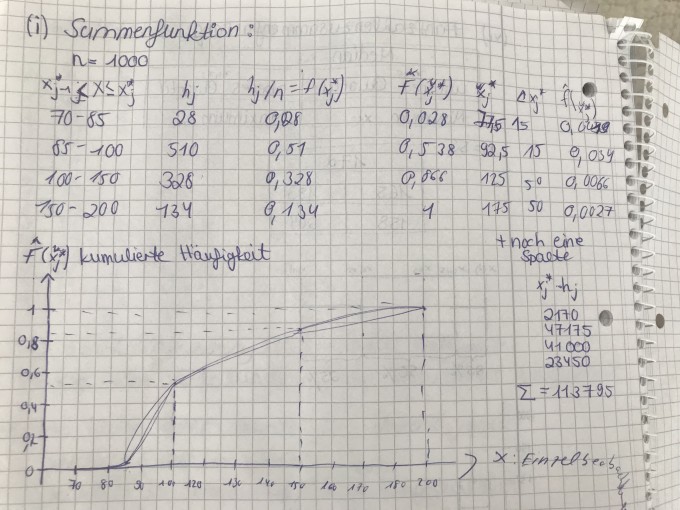 (i) Summenfunktion:
n = 1000
x*j-1 ≤ X ≤ x*j hj hj/n = f(x*j) F̂(x*j) x*j Δxj* f̂(x*)
70-85 28 0,028 0,028 77,5 15
85-100 510 0,51 0,538 92,5 15 0,034
100-150 328 0,328 0,866 125 50 0,0066
150-200 134 0,134 1 175 50 0,0027
+ noch eine
Spalte
F̂(x*j) kumulierte Häufigkeit
xj* · hj
2170
47175
41000
23450
Σ = 113795
1
0,8
0,6
0,4
0,2
0
70 80 90 120 130 140 150 160 170 180 190 200
X: Einzelbeob.